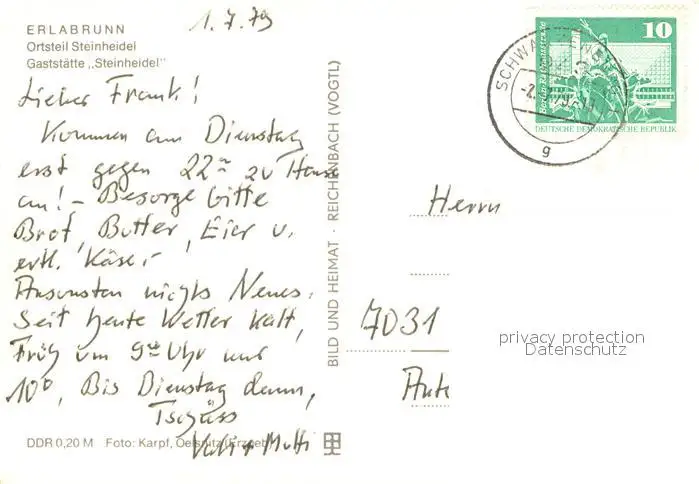 1.7.79
ERLABRUNN
Ortsteil Steinheidel
Gaststätte „Steinheidel"
Lieber Frank!
Kommen am Dienstag
erst gegen 22 zu Hause
an! – Besorge bitte
Brot, Butter, Eier u.
evtl. Käse! –
Ansonsten nichts Neues.
Seit heute Wetter kalt,
Früh um 9 Uhr nur
10°. Bis Dienstag dann,
Tschüss
Vati + Mutti
DDR 0,20 M Foto: Karpf, Oelsnitz (Erzgeb.)
BILD UND HEIMAT · REICHENBACH (VOGTL)
10
DEUTSCHE DEMOKRATISCHE REPUBLIK
g
Herrn
7031
privacy protection
Datenschutz